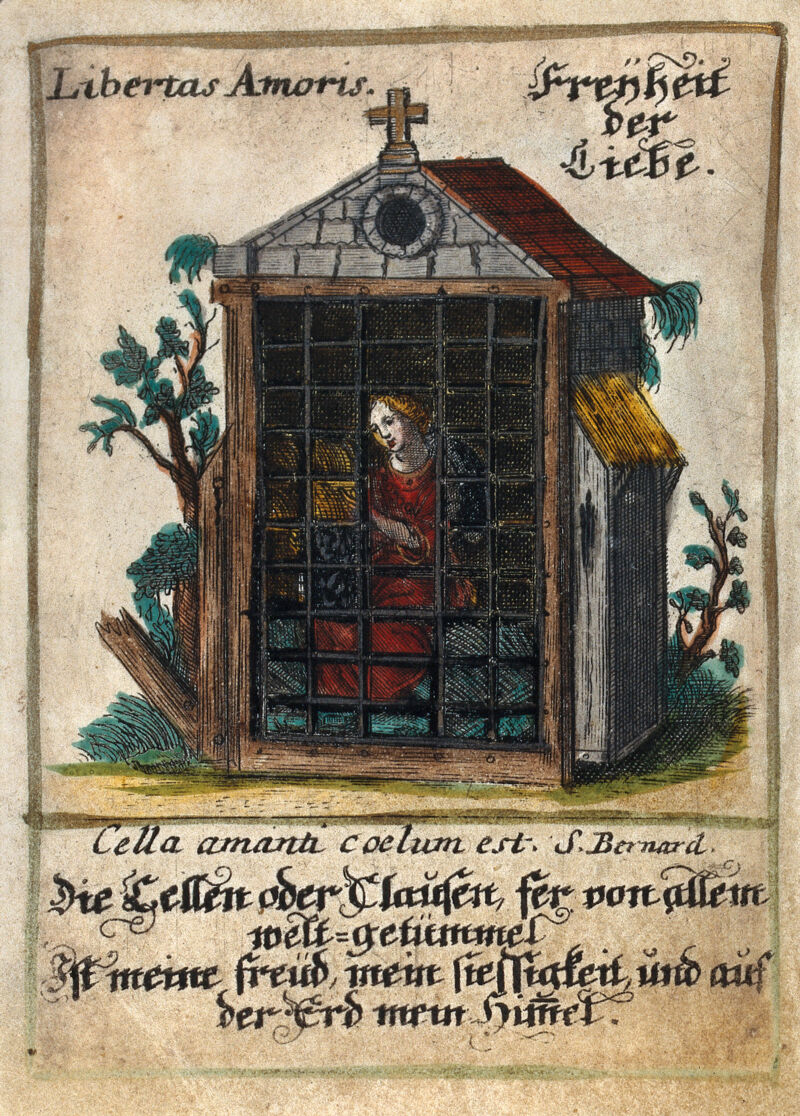 Libertas Amoris.
Freÿheit
der
Liebe.
Cella amanti coelum est. S. Bernard.
Die Cellen oder Clausen, fer von allem
welt=getümmel
Ist meine freüd, mein siessigkeit, und auf
der Erd mein Him̅el.